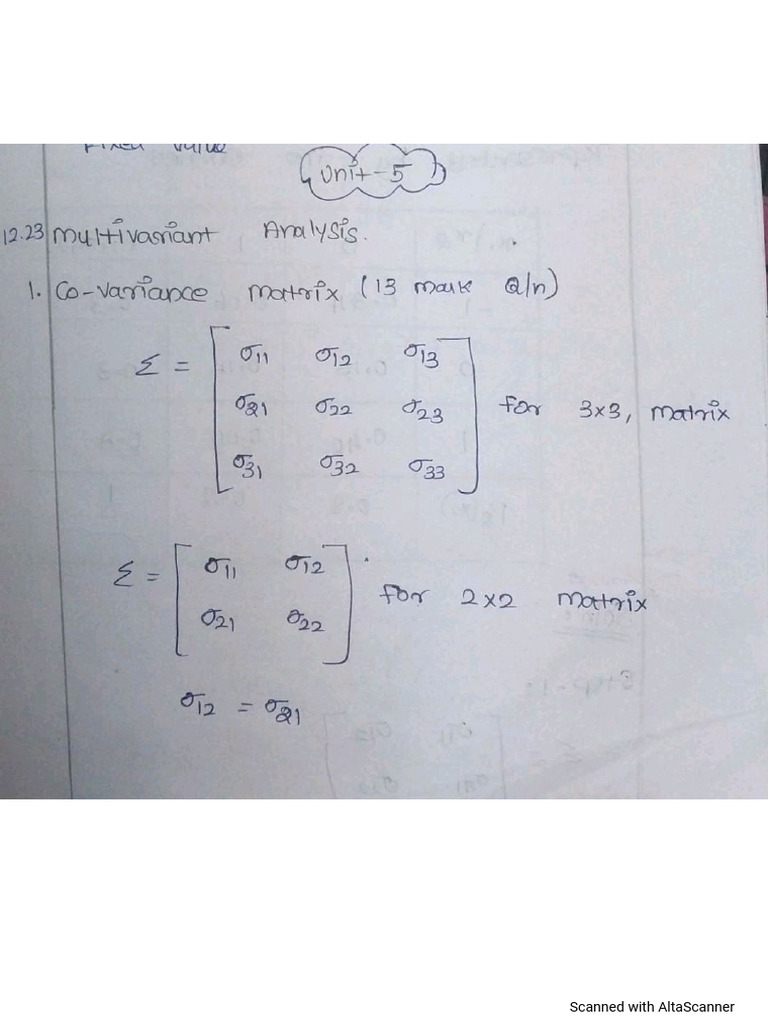 Fixed value
Unit-5
12.23 Multivariant Analysis.
1. Co-variance matrix (13 mark Q/n)
Σ = [ σ11 σ12 σ13
σ21 σ22 σ23
σ31 σ32 σ33 ] for 3×3, matrix
Σ = [ σ11 σ12
σ21 σ22 ] for 2×2 matrix
σ12 = σ21
Scanned with AltaScanner